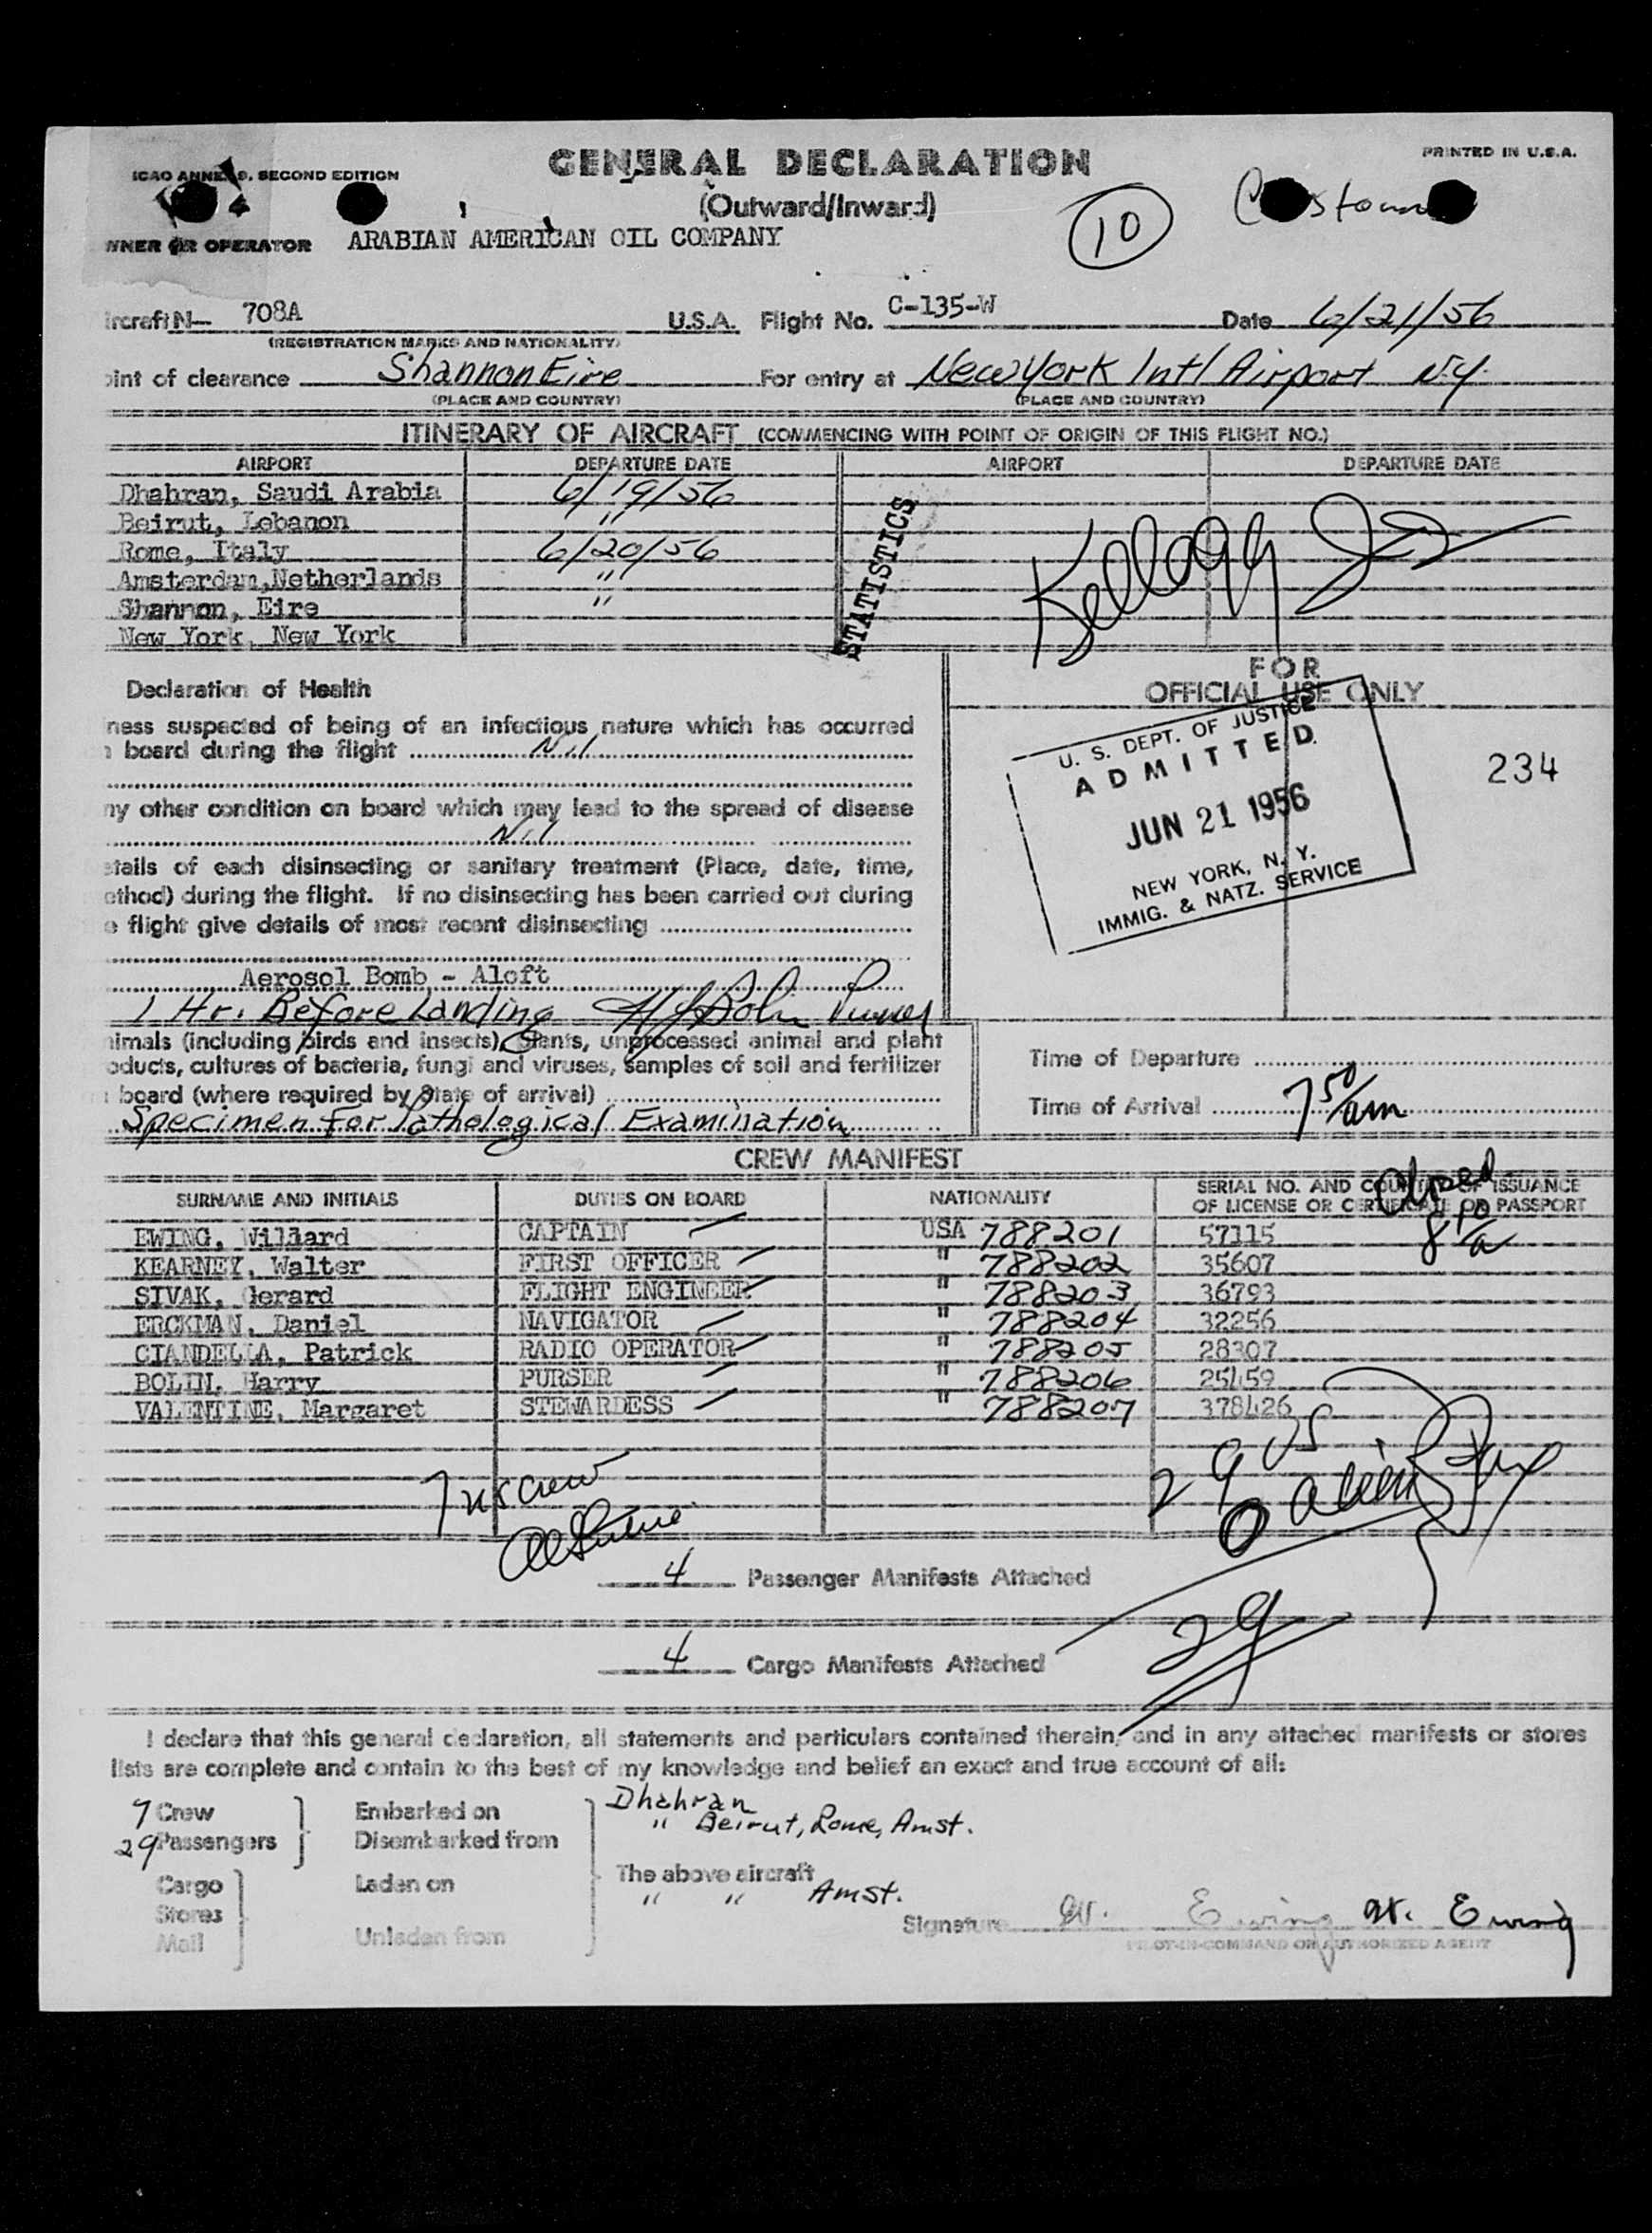 ICAO ANNEX 9, SECOND EDITION
GENERAL DECLARATION
PRINTED IN U.S.A.
(Outward/Inward)
10
Customs
WNER OR OPERATOR ARABIAN AMERICAN OIL COMPANY
ircraft N— 708A U.S.A. Flight No. C-135-W Date 6/21/56
(REGISTRATION MARKS AND NATIONALITY)
oint of clearance Shannon Eire For entry at New York Int'l Airport N.Y.
(PLACE AND COUNTRY) (PLACE AND COUNTRY)
ITINERARY OF AIRCRAFT (COMMENCING WITH POINT OF ORIGIN OF THIS FLIGHT NO.)
AIRPORT DEPARTURE DATE AIRPORT DEPARTURE DATE
Dhahran, Saudi Arabia 6/19/56
Beirut, Lebanon "
Rome, Italy 6/20/56
Amsterdam, Netherlands "
Shannon, Eire "
New York, New York
STATISTICS
Kellogg
Declaration of Health
FOR
OFFICIAL USE ONLY
ness suspected of being of an infectious nature which has occurred
n board during the flight Nil
ny other condition on board which may lead to the spread of disease
Nil
etails of each disinsecting or sanitary treatment (Place, date, time,
ethod) during the flight. If no disinsecting has been carried out during
e flight give details of most recent disinsecting
Aerosol Bomb - Aloft
1 Hr. Before Landing H J Bolin Purser
U. S. DEPT. OF JUSTICE
ADMITTED
JUN 21 1956
NEW YORK, N. Y.
IMMIG. & NATZ. SERVICE
234
nimals (including birds and insects), plants, unprocessed animal and plant
oducts, cultures of bacteria, fungi and viruses, samples of soil and fertilizer
n board (where required by State of arrival)
Specimen For Pathological Examination
Time of Departure
Time of Arrival 7 50/am
CREW MANIFEST
SURNAME AND INITIALS DUTIES ON BOARD NATIONALITY SERIAL NO. AND COUNTRY OF ISSUANCE
OF LICENSE OR CERTIFICATE OR PASSPORT
8 10/a
EWING, Willard CAPTAIN USA 788201 57115
KEARNEY, Walter FIRST OFFICER " 788202 35607
SIVAK, Gerard FLIGHT ENGINEER " 788203 36793
ERCKMAN, Daniel NAVIGATOR " 788204 32256
CIANDELLA, Patrick RADIO OPERATOR " 788205 28307
BOLIN, Harry PURSER " 788206 25459
VALENTINE, Margaret STEWARDESS " 788207 378426
7 us crew
29 US
0 alien
29
4 Passenger Manifests Attached
4 Cargo Manifests Attached
I declare that this general declaration, all statements and particulars contained therein, and in any attached manifests or stores
lists are complete and contain to the best of my knowledge and belief an exact and true account of all:
7 Crew Embarked on Dhahran
29 Passengers Disembarked from " Beirut, Rome, Amst.
Cargo Laden on The above aircraft
Stores " " Amst.
Mail Unladen from
Signature W. Ewing W. Ewing
PILOT-IN-COMMAND OR AUTHORIZED AGENT